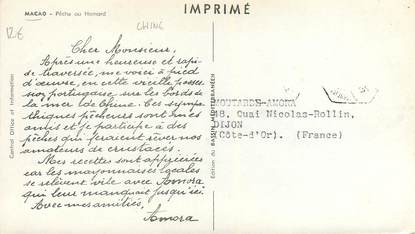 MACAO - Pêche au Homard
IMPRIMÉ
CHINE
Cher Monsieur,
Après une heureuse et rapi-
de traversée, me voici à pied
d'œuvre, en cette vieille posses-
sion portugaise, sur les bords de
la mer de Chine. Ces sympa-
thiques pêcheurs sont mes
amis et je participe à des
pêches qui feraient rêver nos
amateurs de crustacés.
Mes recettes sont appréciées
car les mayonnaises locales
se relèvent vite avec Amora
qui leur manquait jusqu'ici.
Avec mes amitiés,
Amora
Central Office of Information
Edition du BASSIN MEDITERRANÉEN
MOUTARDE-AMORA
48, Quai Nicolas-Rollin,
DIJON
(Côte-d'Or). (France)